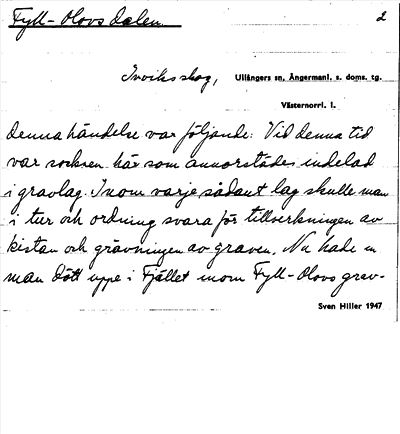 Fyll-Olovs dalen
2
Inviks skog, Ullångers sn, Ångermanl. s. doms. tg.
Västernorrl. l.
Denna händelse var följande: Vid denna tid
var socknen här som annorstädes indelad
i gravlag. Inom varje sådant lag skulle man
i tur och ordning svara för tillverkningen av
kistan och grävningen av graven. Nu hade en
man dött uppe i Fjället inom Fyll-Olovs grav-
Sven Hiller 1947